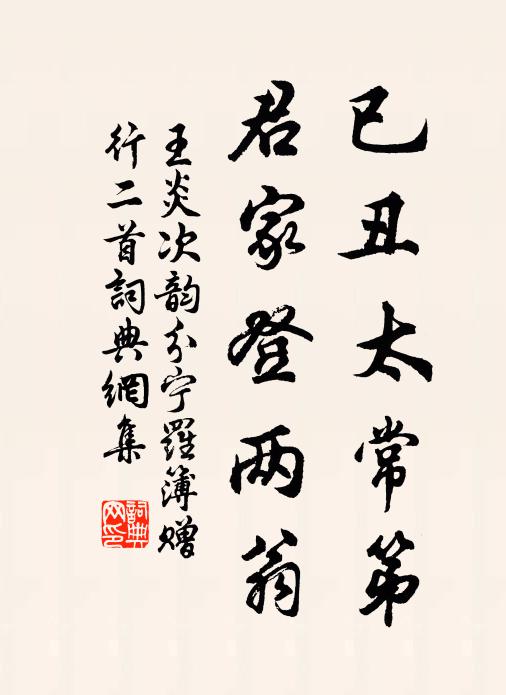 已丑太常第
君家登两翁
王炎次韵分宁羅簿赠
行二首詞典網集
詞典
网印